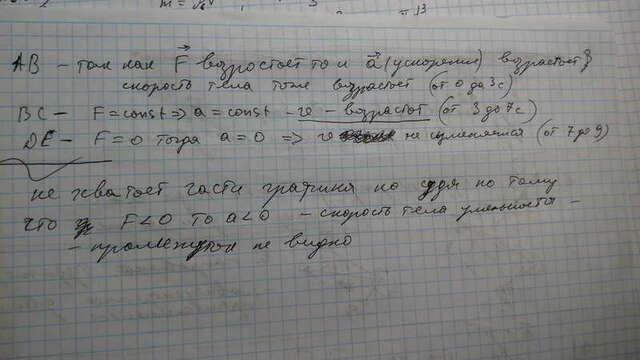 AB – так как F⃗ возростоет то и a⃗ (ускорения) возрастоет}
скорость тела тоже возрастоет (от 0 до 3с)
BC – F = const => a = const – v – возрастот (от 3 до 7с)
DE – F = 0 тогда a = 0 => v не изменяется (от 7 до 9)
не хватоет части графика но судя по тому
что F < 0 то a < 0 – скорость тела уменьшается –
– промежуток не видно